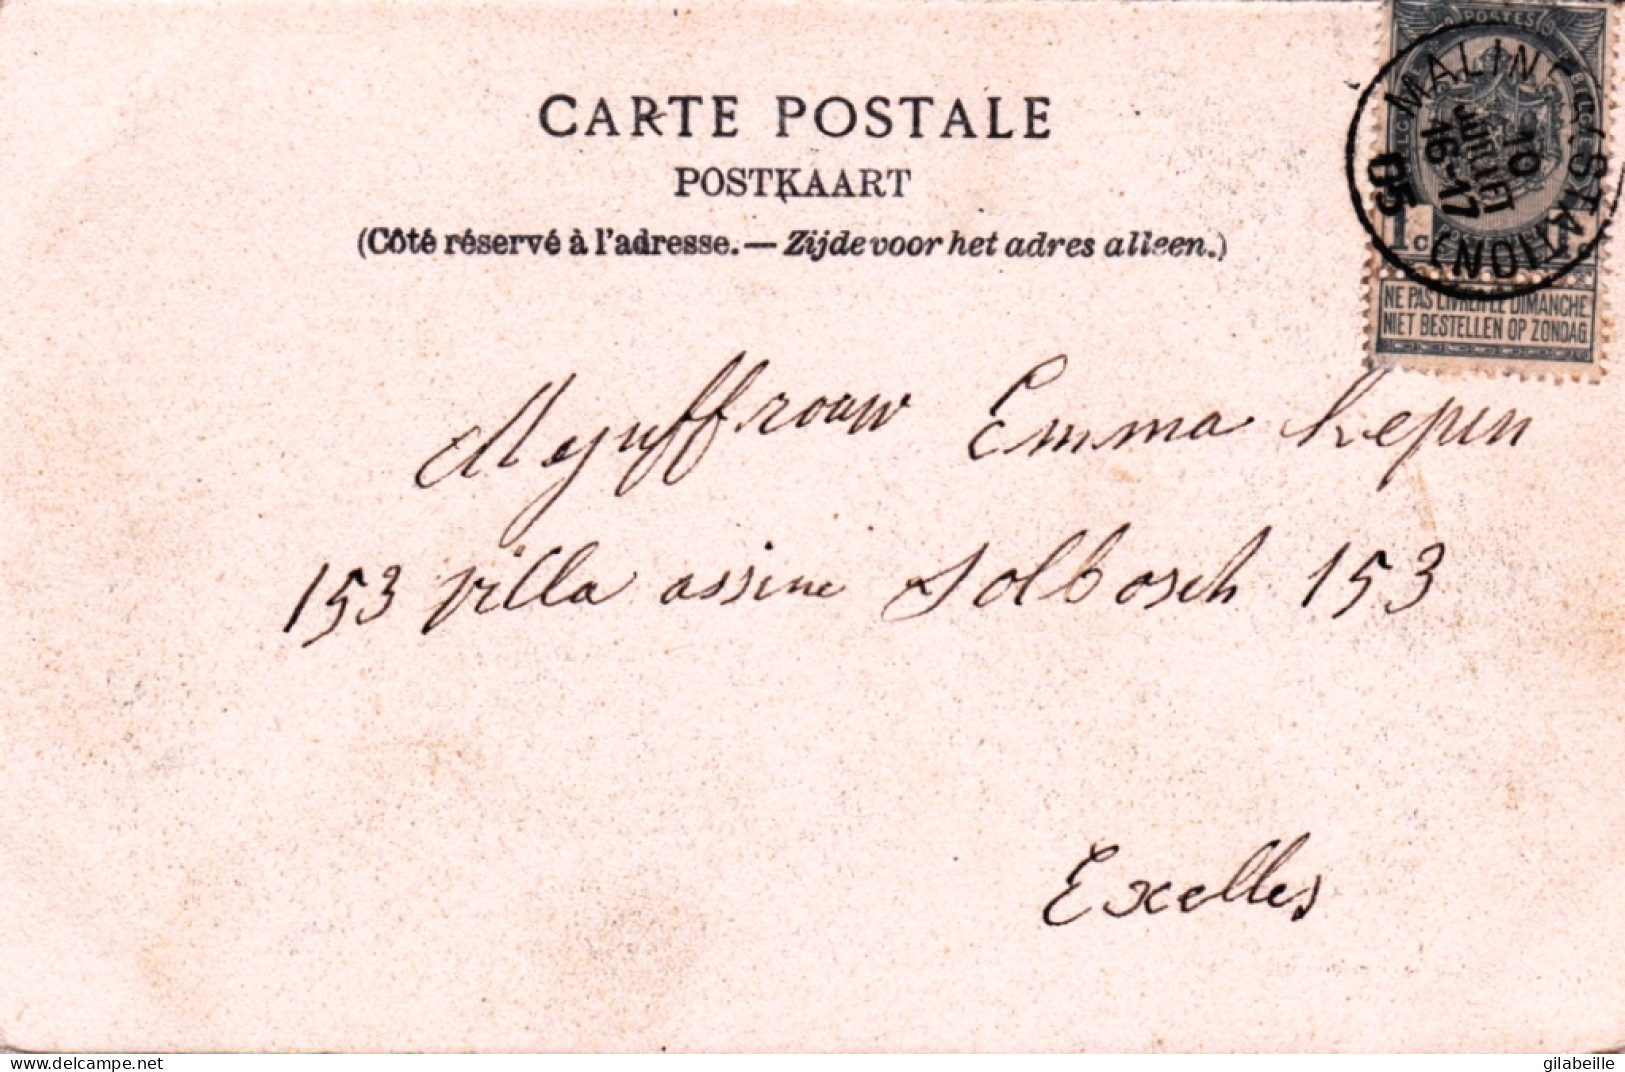 CARTE POSTALE
POSTKAART
(Côté réservé à l'adresse. — Zijde voor het adres alleen.)
POSTES
MALINES (STATION)
10
JUILLET
16-17
05
1c
NE PAS LIVRER LE DIMANCHE
NIET BESTELLEN OP ZONDAG
Mejuffrouw Emma Kepen
153 villa assine Solbosch 153
Exelles
delcampe.net
gilabeille